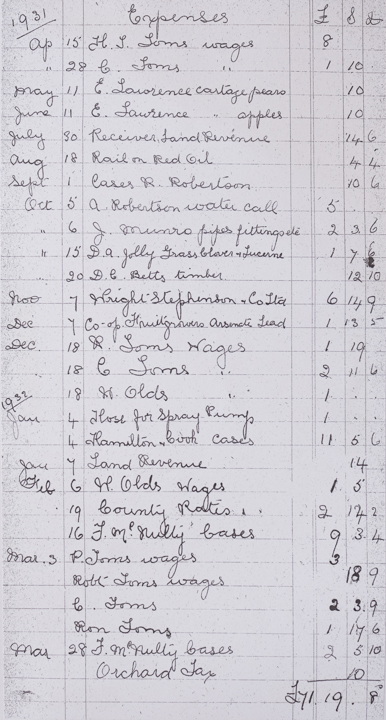 1931 Expenses £ S d
Ap 15 H. J. Toms wages 8
" 28 C. Toms " 1 10
May 11 E. Lawrence cartage pears 10
June 11 E. Lawrence " apples 10
July 30 Receiver Land Revenue 14 6
Aug 18 Rail on Red Oil 4 4
Sept 1 Cases R. Robertson 10 6
Oct 5 A. Robertson water call 5 .
" 6 J. Munro pipes fittings etc 2 3 6
" 15 D.A. Jolly Grass Clover & Lucerne 1 7 6
" 20 D.C. Betts timber 12 10
Nov 7 Wright Stephenson & Co Ltd 6 14 9
Dec 7 Co-op. Fruitgrowers Arsenate Lead 1 13 5
Dec. 18 R. Toms Wages 1 19
18 C Toms " 2 11 6
1932 18 H. Olds " 1 . .
Jan 4 Hose for Spray Pump 1 . .
4 Hamilton & Cook cases 11 5 6
Jan 7 Land Revenue 14
Feb 6 H. Olds Wages 1 5
19 County Rates 2 17 2
16 F. McNulty cases 9 3 4
Mar. 3 P. Toms wages 3
Robt Toms wages 18 9
C. Toms 2 3 9
Ron Toms 1 17 6
Mar 28 F. McNulty cases 2 5 10
Orchard Tax 10
£71. 19. 8